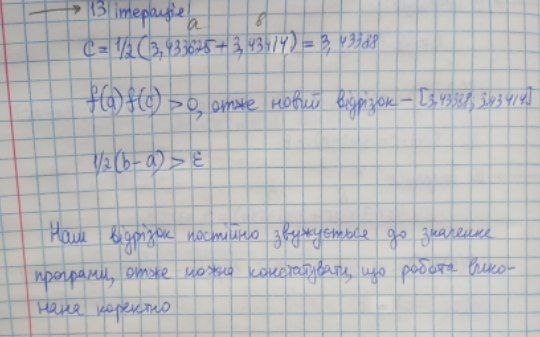 → 13 ітерація
a b
C = 1/2 (3,433625 + 3,43414) = 3,43388
f(a) f(c) > 0, отже новий відрізок – [3,43388, 3,43414]
1/2 (b - a) > ε
Наш відрізок постійно звужується до значення
програми, отже можна констатувати, що робота вико-
нана коректно